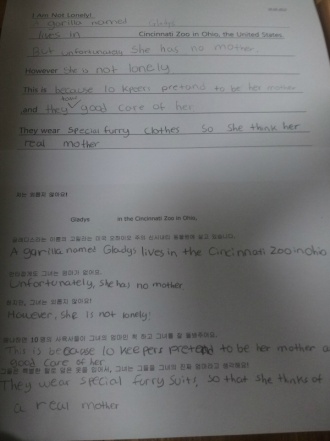 I Am Not Lonely!
A gorilla named Gladys
lives in Cincinnati Zoo in Ohio, the United States.
But unfortunately she has no mother.
However she is not lonely
This is because 10 keepers pretend to be her mother
and they take good care of her
They wear special furry clothes so she think her
real mother
저는 외롭지 않아요!
Gladys in the Cincinnati Zoo in Ohio.
A gorilla named Gladys lives in the Cincinnati Zoo in ohio
Unfortunately, she has no mother.
However, she is not lonely!
This is because 10 keepers pretend to be her mother a
good care of her
They wear special furry suits, so that she thinks of
a real mother